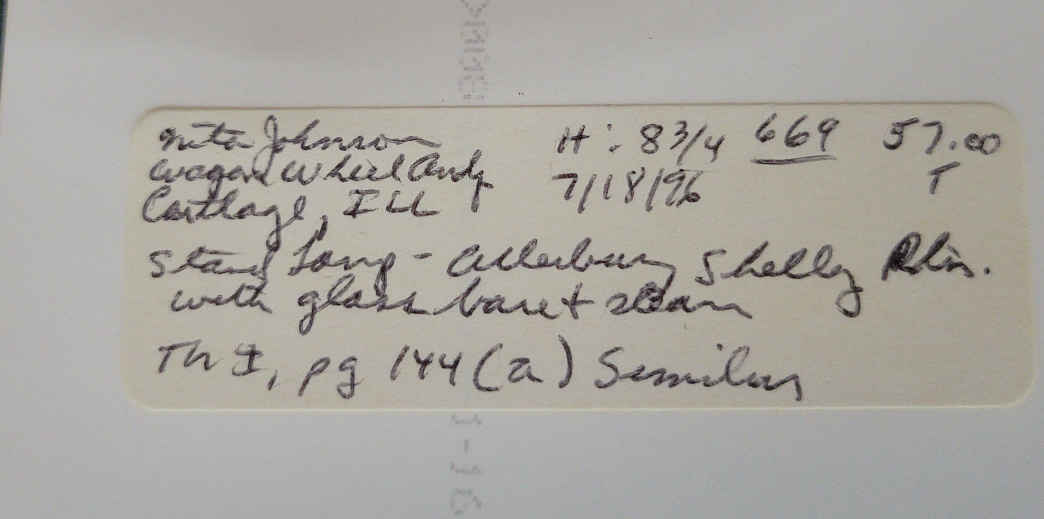 Nita Johnson H: 8 3/4 669 57.00
Wagon Wheel Antq 7/18/96 T
Carthage, ILL
Stand Lamp - Atterbury Shelly Ribs.
with glass base + steam
Th I, pg 144 (a) Similar